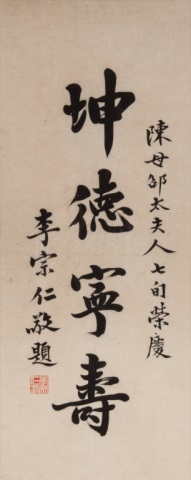 陳母邹太夫人七旬榮慶
坤德寧壽
李宗仁敬題